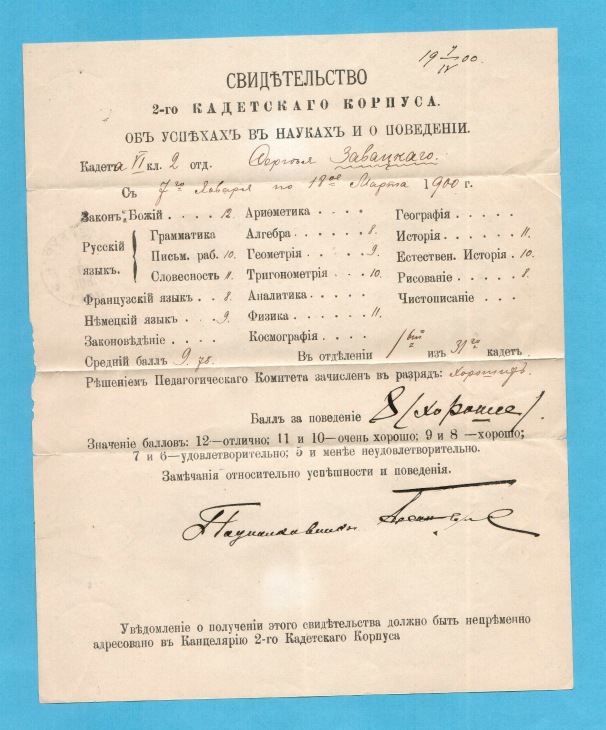 19 7/IV 00.
СВИДѢТЕЛЬСТВО
2-го КАДЕТСКАГО КОРПУСА.
ОБЪ УСПѢХАХЪ ВЪ НАУКАХЪ И О ПОВЕДЕНІИ.
Кадета VI кл. 2 отд. Сергѣя Завацкаго.
Съ 7го Января по 18ое Марта 1900 г.
Законъ Божій . . . 12. Ариѳметика . . . . Географія . . . .
Русскій языкъ. { Грамматика Алгебра . . . . 8. Исторія . . . . 11.
Письм. раб. 10. Геометрія . . . . 9. Естествен. Исторія . 10.
Словесность 11. Тригонометрія . . 10. Рисованіе . . . . 8.
Французскій языкъ . . 8. Аналитика . . . . . Чистописаніе . . .
Нѣмецкій языкъ . . . 9. Физика . . . . . 11.
Законовѣдѣніе . . . . Космографія . . . .
Средній баллъ 9.78. Въ отдѣленіи 1вый изъ 31го кадет.
Рѣшеніемъ Педагогическаго Комитета зачисленъ въ разрядъ: хорошихъ.
Баллъ за поведеніе 8 (хорошее).
Значеніе балловъ: 12—отлично; 11 и 10—очень хорошо; 9 и 8 —хорошо;
7 и 6—удовлетворительно; 5 и менѣе неудовлетворительно.
Замѣчанія относительно успѣшности и поведенія.
Увѣдомленіе о полученіи этого свидѣтельства должно быть непрѣменно
адресовано въ Канцелярію 2-го Кадетскаго Корпуса